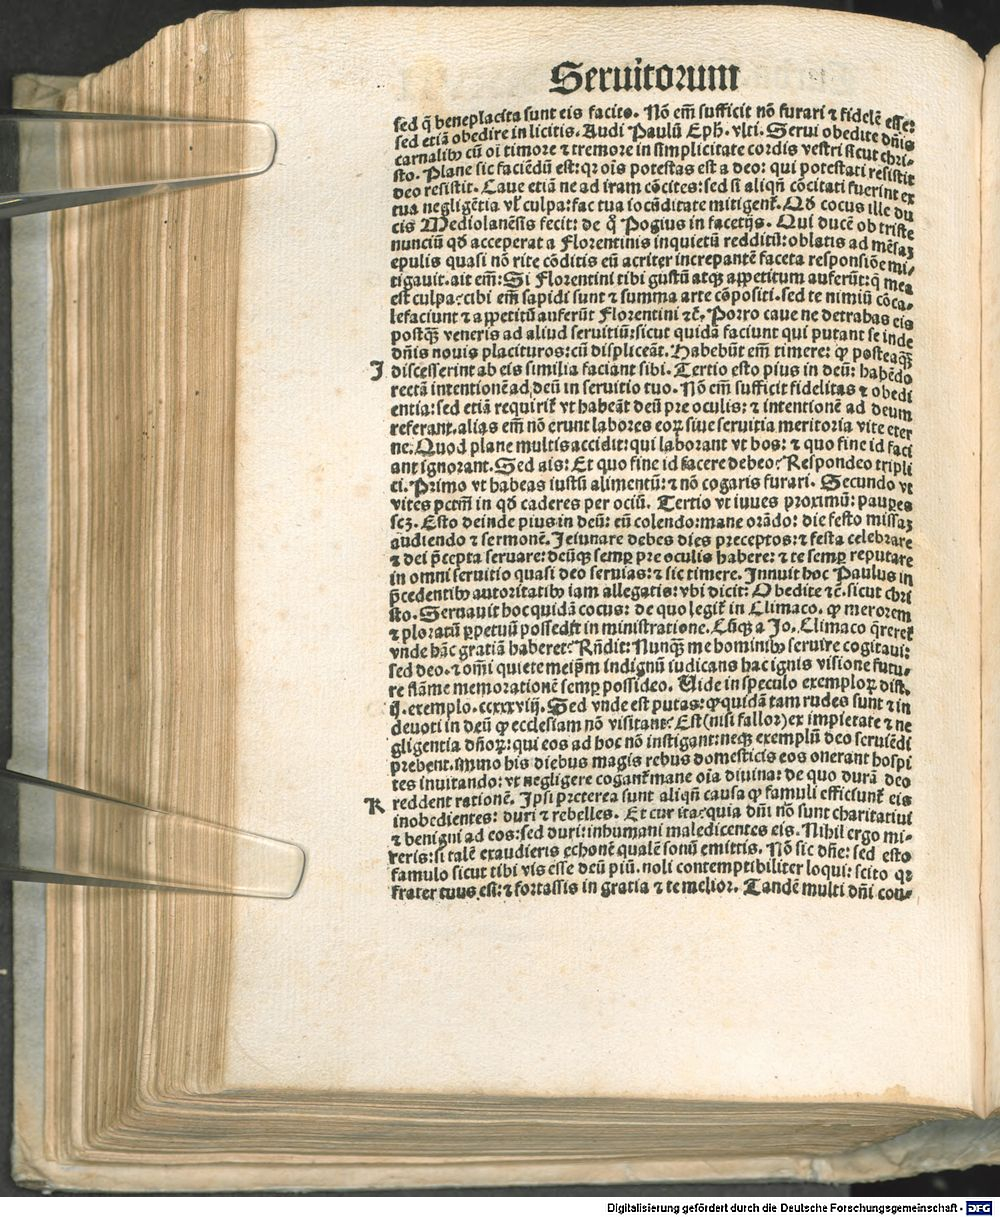 Seruitorum
sed q̄ beneplacita sunt eis facito. Nō em̄ sufficit nō furari ⁊ fidelē esse:
sed etiā obedire in licitis. Audi Paulū Eph̄. vlti. Serui obedite dn̄is
carnalibꝰ cū oī timore ⁊ tremore in simplicitate cordis vestri sicut chri-
sto. Plane sic faciēdū est: qꝛ oīs potestas est a deo: qui potestati resistit
deo resistit. Caue etiā ne ad iram cōcites: sed si aliqn̄ cōcitati fuerint ex
tua negligētia vl' culpa: fac tua iocūditate mitigent᷑. Qd̄ cocus ille du
cis Mediolanēsis fecit: de q̊ Pogius in facetijs. Qui ducē ob triste
nunciū qd̄ acceperat a Florentinis inquietū redditū: oblatis ad mēsaꝫ
epulis quasi nō rite cōditis eū acriter increpantē faceta responsiōe mi-
tigauit. ait em̄: Si Florentini tibi gustū atqꝫ appetitum auferūt: q̄ mea
est culpa: cibi em̄ sapidi sunt ⁊ summa arte cōpositi. sed te nimiū cōca-
lefaciunt ⁊ appetitū auferūt Florentini ⁊c̄. Porro caue ne detrabas eis
postqꝫ veneris ad aliud seruitiū: sicut quidā faciunt qui putant se inde
dn̄is nouis placituros: cū displiceāt. Habebūt em̄ timere: ꝙ posteaqꝫ
J discesserint ab eis similia faciant sibi. Tertio esto pius in deū: habēdo
rectā intentionē ad deū in seruitio tuo. Nō em̄ sufficit fidelitas ⁊ obedi
entia: sed etiā requirit᷑ vt habeāt deū pre oculis: ⁊ intentionē ad deum
referant. alias em̄ nō erunt labores eoꝝ siue seruitia meritoria vite eter
ne. Quod plane multis accidit: qui laborant vt bos: ⁊ quo fine id faci
ant ignorant. Sed ais: Et quo fine id facere debeo? Respondeo tripli
ci. Primo vt habeas iustū alimentū: ⁊ nō cogaris furari. Secundo vt
vites pctm̄ in qd̄ caderes per ociū. Tertio vt iuues proximū: pauꝑes
scꝫ. Esto deinde pius in deū: eū colendo: mane orādo: die festo missaꝫ
audiendo ⁊ sermonē. Jeiunare debes dies preceptos: ⁊ festa celebrare
⁊ dei p̄cepta seruare: deūqꝫ semꝑ pre oculis habere: ⁊ te semꝑ reputare
in omni seruitio quasi deo seruias: ⁊ sic timere. Innuit hoc Paulus in
p̄cedentibꝰ autoritatibꝰ iam allegatis: vbi dicit: Obedite ⁊c̄. sicut chri
sto. Seruauit hoc quidā cocus: de quo legit᷑ in Climaco. ꝙ merorem
⁊ ploratū ꝑpetuū possedit in ministratione. Cūqꝫ a Jo. Climaco q̄reret᷑
vnde hāc gratiā haberet? Rn̄dit: Nunqꝫ me hominibꝰ seruire cogitaui:
sed deo. ⁊ om̄i quiete meip̄m indignū iudicans hac ignis visione futu-
re flāme memorationē semꝑ possideo. Vide in speculo exemploꝝ dist.
ij. exemplo. ccxxxviij. Sed vnde est putas: ꝙ quidā tam rudes sunt ⁊ in
deuoti in deū ꝙ ecclesiam nō visitant? Est (nisi fallor) ex impietate ⁊ ne
gligentia dn̄oꝝ: qui eos ad hoc nō instigant: neqꝫ exemplū deo seruiēdi
prebent. immo his diebus magis rebus domesticis eos onerant hospi
tes inuitando: vt negligere cogant᷑ mane oīa diuina: de quo durā deo
K reddent rationē. Ipsi preterea sunt aliqn̄ causa ꝙ famuli efficiunt᷑ eis
inobedientes: duri ⁊ rebelles. Et cur ita? quia dn̄i nō sunt charitatiui
⁊ benigni ad eos: sed duri: inhumani maledicentes eis. Nihil ergo mi-
reris: si talē exaudieris echonē qualē sonū emittis. Nō sic dn̄e: sed esto
famulo sicut tibi vis esse deū piū. noli contemptibiliter loqui: scito qꝛ
frater tuus est: ⁊ fortassis in gratia ⁊ te melior. Tandē multi dn̄i con-
Digitalisierung gefördert durch die Deutsche Forschungsgemeinschaft - DFG